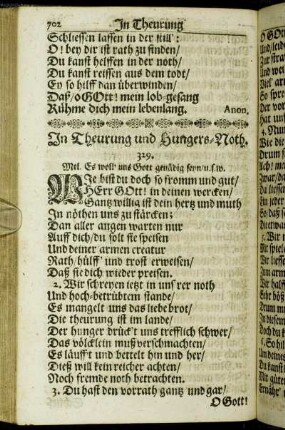 702 In Theurung
Schliessen lassen in der still:
O! bey dir ist rath zu finden/
Du kanst helffen in der noth/
Du kanst reissen aus dem todt/
Ey so hilff dan überwinden/
Daß/ o GOtt! mein lob-gesang
Rühme dich mein lebenlang. Anon.
In Theurung und Hungers-Noth.
329.
Mel. Es woll' uns Gott genädig seyn/u.s.w.
WJe bist du doch so fromm und gut/
HErr GOtt! in deinen wercken/
Gantz willig ist dein hertz und muth
Jn nöthen uns zu stärcken;
Dan aller augen warten nur
Auff dich/ du solt sie speisen
Und deiner armen creatur
Rath/ hülff' und trost erweisen/
Daß sie dich wieder preisen.
2. Wir schreyen jetzt in unsrer noth
Und hoch-betrübtem stande/
Es mangelt uns das liebe brot/
Die theurung ist im lande/
Der hunger drück't uns trefflich schwer/
Das völcklein muß verschmachten/
Es läufft und bettelt hin und her/
Dieß will kein reicher achten/
Noch fremde noth betrachten.
3. Du hast den vorrath gantz und gar/
O Gott!